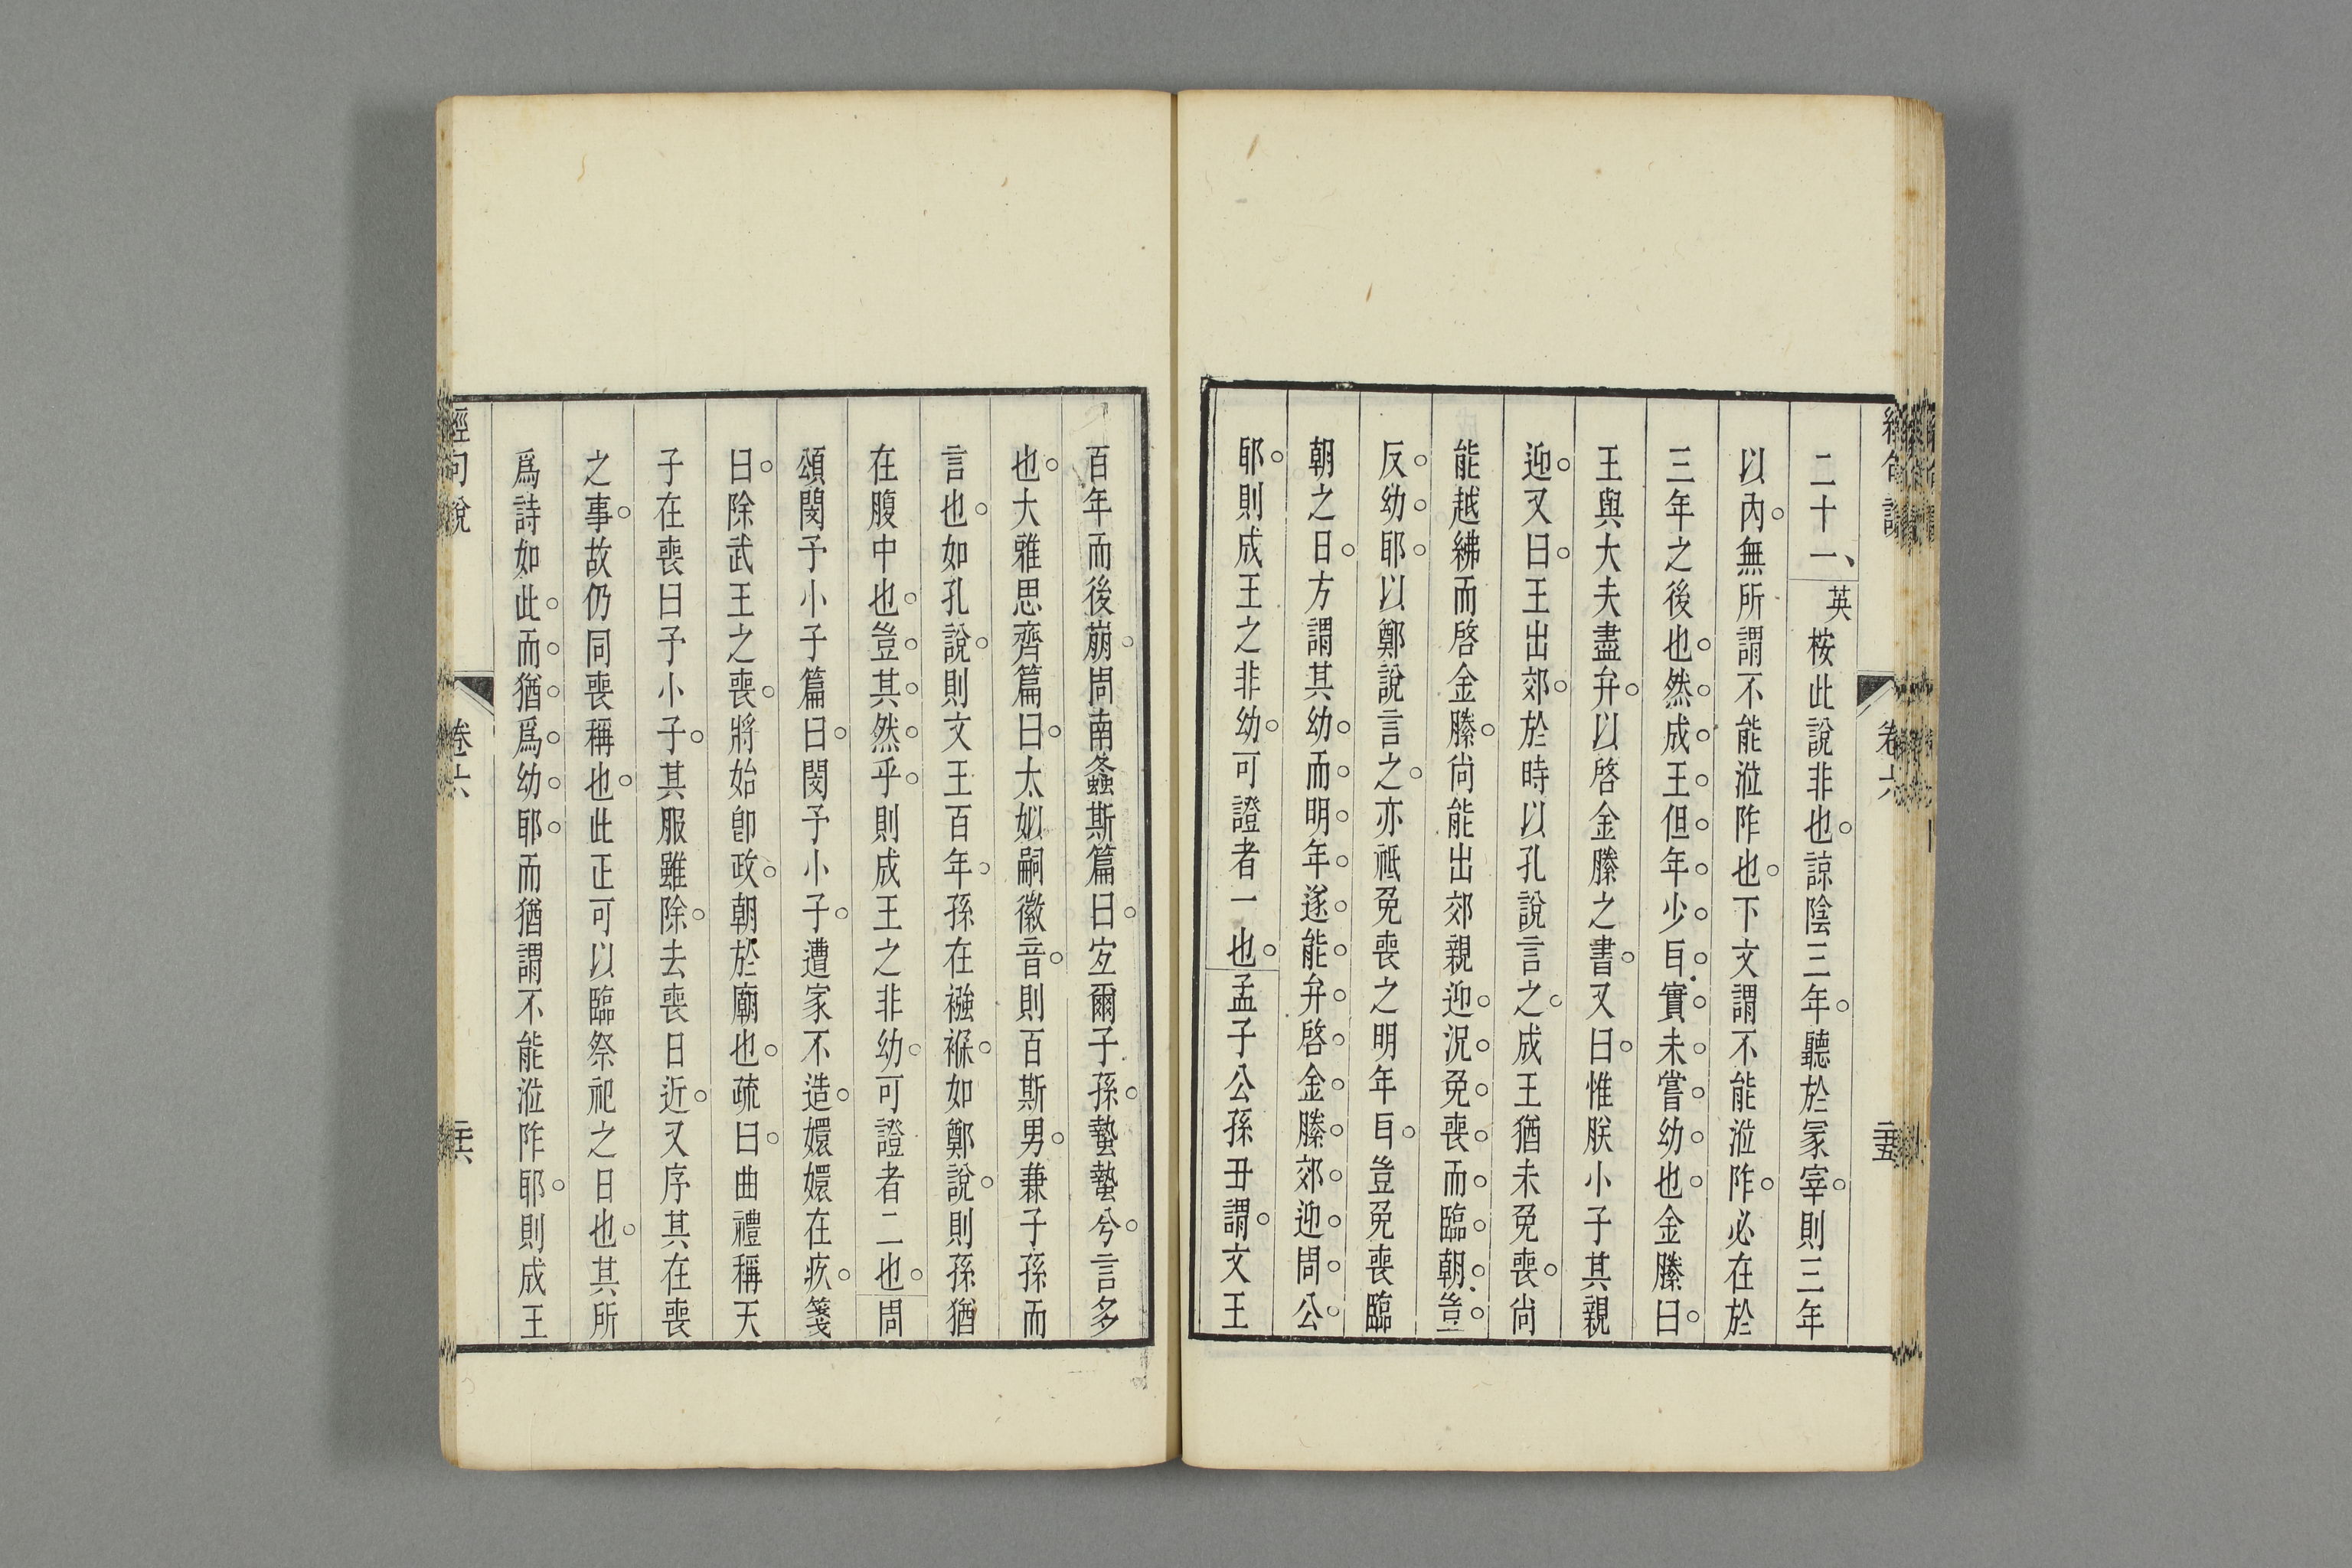 經句說 卷六 二五
二十一、英桉此說非也諒陰三年聽於冢宰則三年
以內無所謂不能涖阼也下文謂不能涖阼必在於
三年之後也然成王但年少㠯實未嘗幼也金縢曰
王與大夫盡弁以啓金縢之書又曰惟朕小子其親
迎又曰王出郊於時以孔說言之成王猶未免喪尙
能越紼而啓金縢尙能出郊親迎況免喪而臨朝豈
反幼耶以鄭說言之亦祗免喪之明年㠯豈免喪臨
朝之日方謂其幼而明年遂能弁啓金縢郊迎周公
耶則成王之非幼可證者一也孟子公孫丑謂文王
百年而後崩周南螽斯篇曰宜爾子孫蟄蟄兮言多
也大雅思齊篇曰太姒嗣徽音則百斯男兼子孫而
言也如孔說則文王百年孫在襁褓如鄭說則孫猶
在腹中也豈其然乎則成王之非幼可證者二也周
頌閔予小子篇曰閔予小子遭家不造嬛嬛在疚箋
曰除武王之喪將始卽政朝於廟也疏曰曲禮稱天
子在喪曰予小子其服雖除去喪日近又序其在喪
之事故仍同喪稱也此正可以臨祭祀之日也其所
爲詩如此而猶爲幼耶而猶謂不能涖阼耶則成王
經句說 卷六 二六